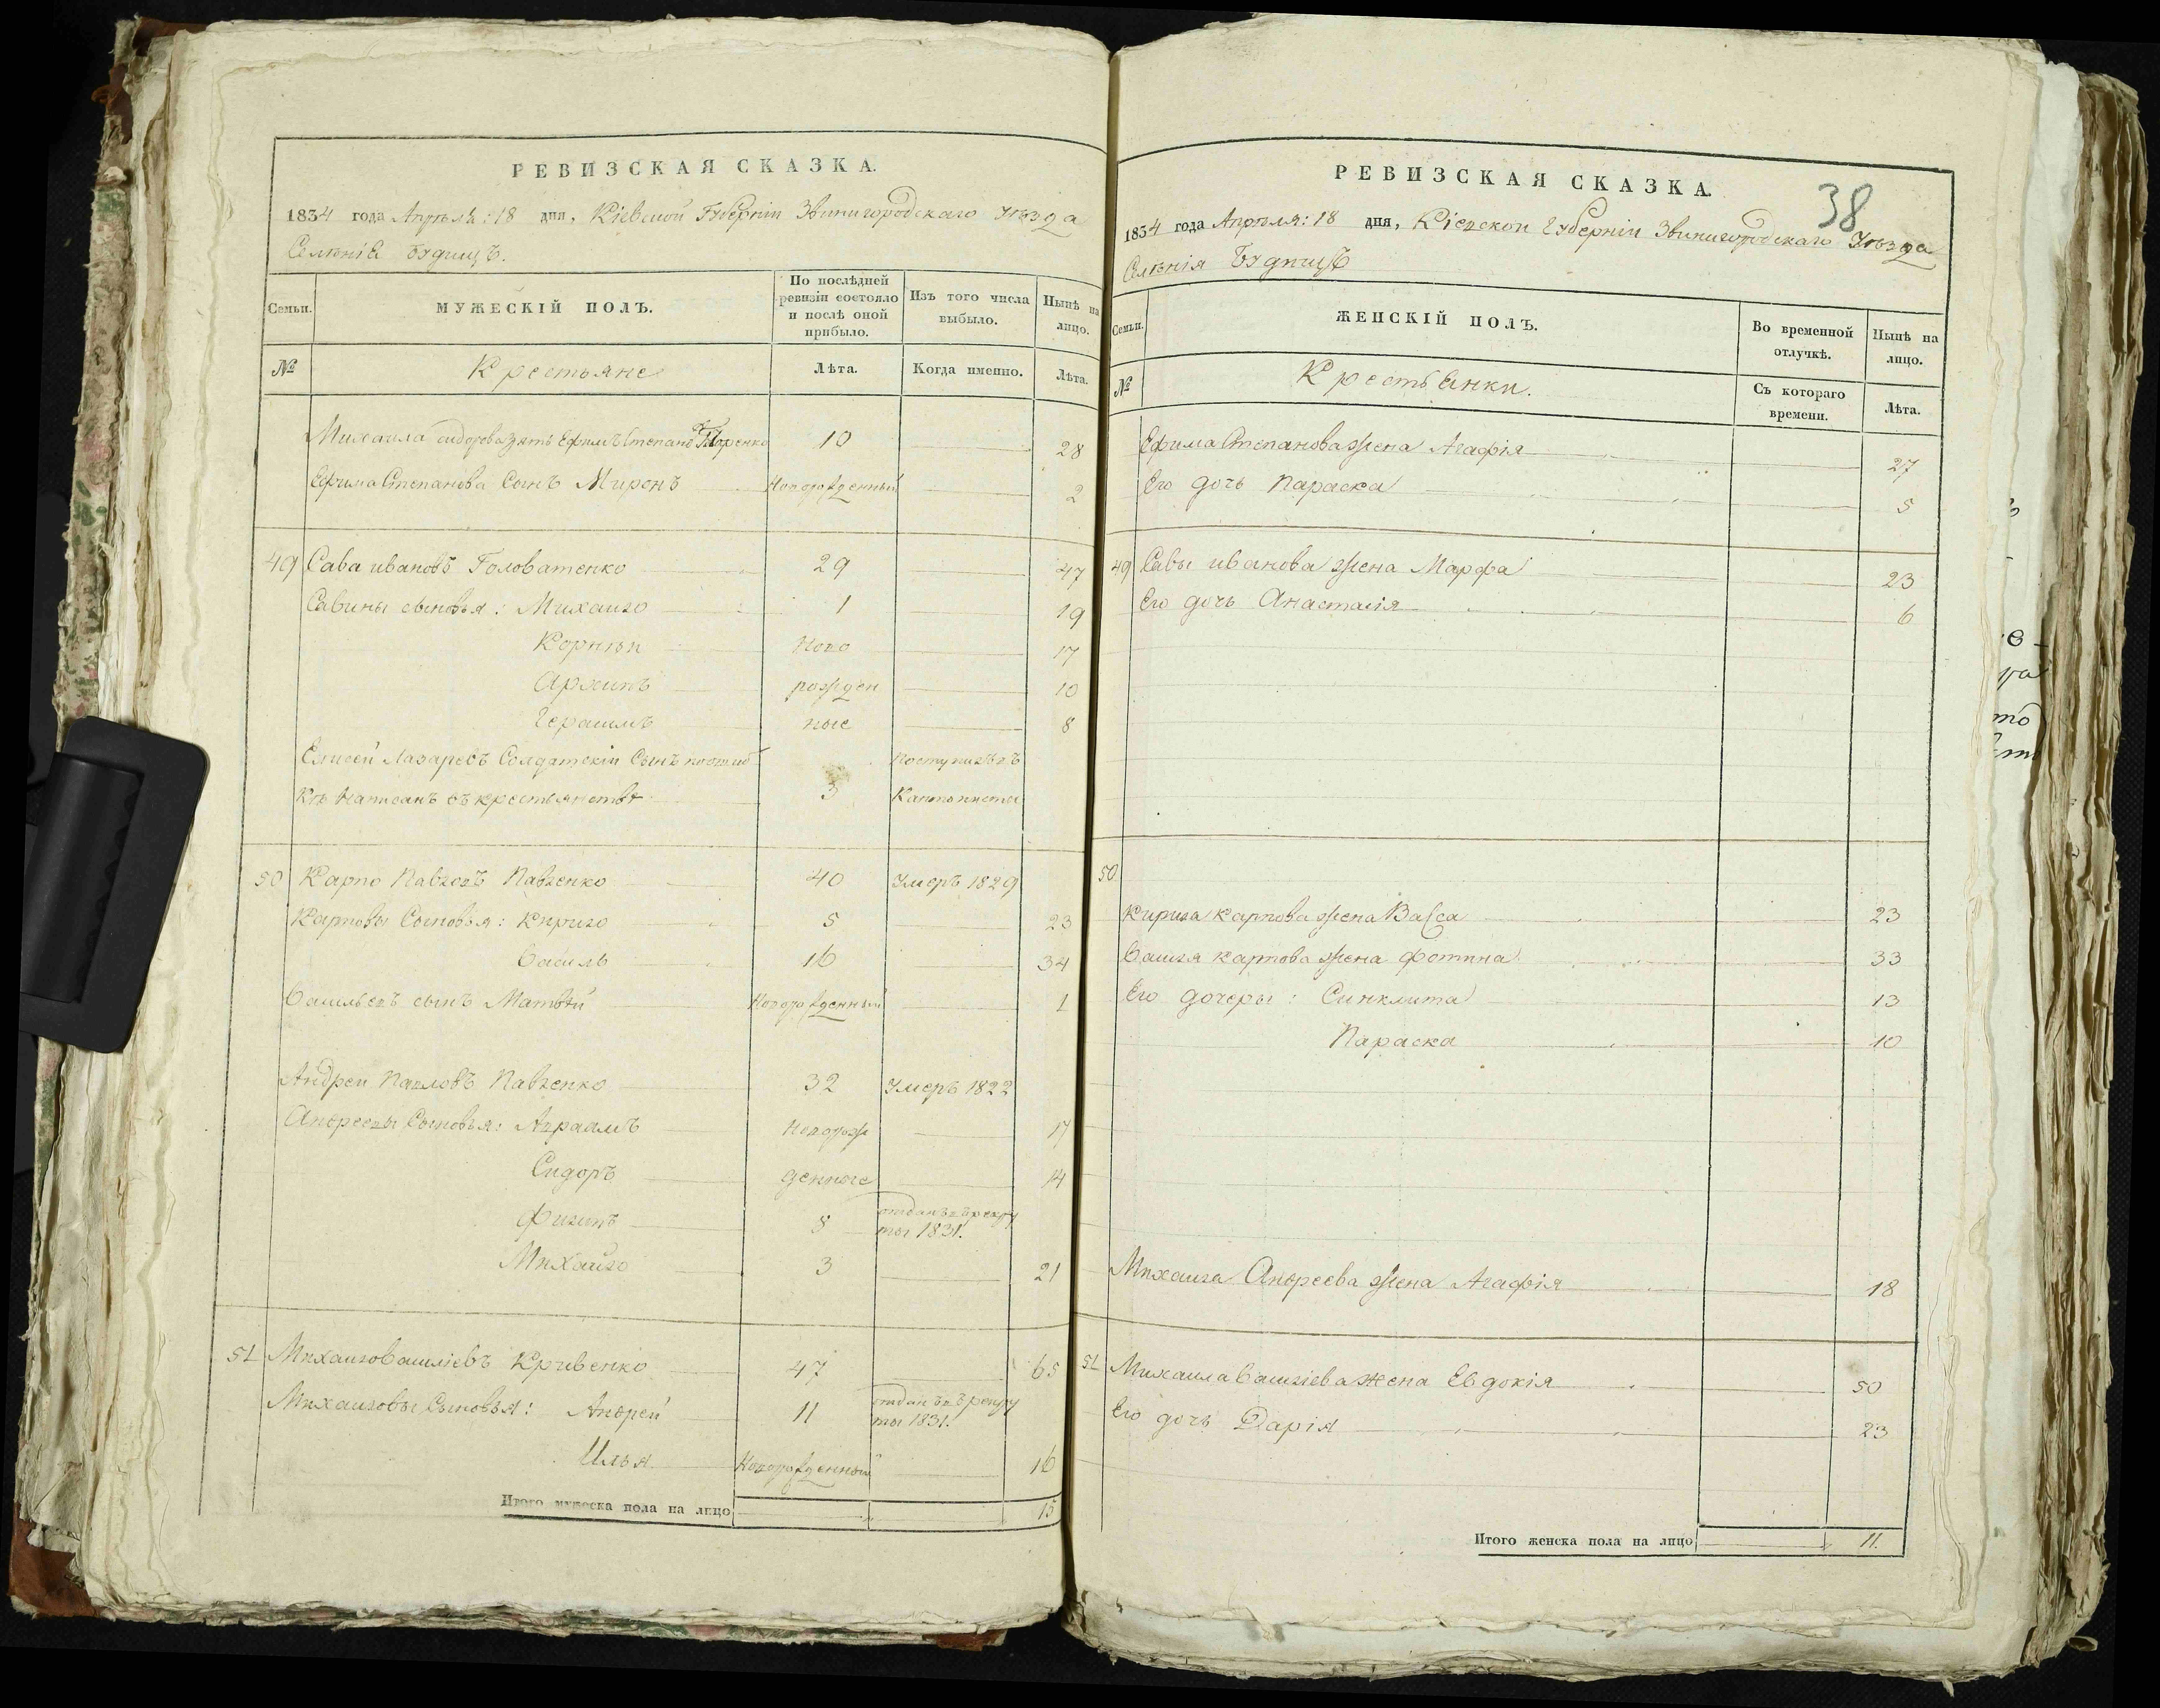 РЕВИЗСКАЯ СКАЗКА.
1834 года Апрѣля: 18 дня, Кіевской Губерніи Звинигородскаго Уѣзда
Селѣнія Будищъ.
Семьи.
МУЖЕСКІЙ ПОЛЪ.
По послѣдней ревизіи состояло и послѣ оной прибыло.
Изъ того числа выбыло.
Нынѣ на лицо.
№
Крестьяне
Лѣта.
Когда именно.
Лѣта.
Михаила сидорова зять Ефимъ Степановъ 10 28
Ефима Степанова Сынъ Миронъ Новорожденный 2
49 Сава ивановъ Головатенко 29 47
Савины сыновья: Михайло 1 19
Корнѣй Ново 17
Архипъ рожден 10
Герасимъ ные 8
Елисей Лазаревъ Солдатскій Сынъ поошиб Поступилъ въ
кѣ Написанъ въ крестьянствѣ 3 Кантонисты
50 Карпо Павловъ Павленко 40 Умеръ 1829
Карповы Сыновья: Кирило 5 23
Василь 16 34
Васильевъ сынъ Матвѣй Новорожденный 1
Андрей Павловъ Павленко 32 Умеръ 1822
Андреевы Сыновья: Авраамъ Новорож 17
Сидоръ денные 14
Филипъ 8 отданъ въ рекру
ты 1831.
Михайло 3 21
51 Михайло Василіевъ Кривенко 47 65
Михайловы Сыновья: Андрей 11 отданъ въ рекру
ты 1831.
Илья Новорожденный 16
Итого мужеска пола на лицо 15
38
РЕВИЗСКАЯ СКАЗКА.
1834 года Апрѣля: 18 дня, Кіевской Губерніи Звинигородскаго Уѣзда
Селѣнія Будищъ
Семьи.
ЖЕНСКІЙ ПОЛЪ.
Во временной отлучкѣ.
Нынѣ на лицо.
№
Крестьянки.
Съ котораго времени.
Лѣта.
Ефима Степанова жена Агафія 27
Его дочь Параска 5
49 Савы иванова жена Марфа 23
Его дочь Анастасія 6
50
Кирила Карпова жена Васса 23
Василя Карпова жена Фотина 33
Его дочеры: Синклита 13
Параска 10
Михаила Андреева жена Агафія 18
51 Михаила Василіева жена Евдокія 50
Его дочь Дарія 23
Итого женска пола на лицо 11.